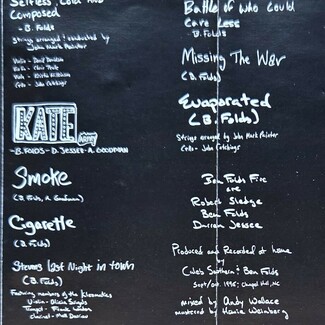 Selfless, Cold and
Composed
-B. Folds
Strings arranged & conducted by
John Mark Painter
Violin - David Davidson
Violin - Chris Teal
Viola - Kristin Wilkinson
Cello - John Catchings
KATE
-B. FOLDS - D. JESSEE - A. GOODMAN
Smoke
(B. Folds, A. Goodman)
Cigarette
(B. Folds)
Stevens last Night in town
(B. Folds)
Featuring members of the Klezmatics
Violin -
Trumpet - Frank London
Clarinet - Matt Darriau
Battle of who Could
Care Less
-B. Folds
Missing The War
(B. Folds)
Evaporated
(B. Folds)
Strings arranged by John Mark Painter
Cello - John Catchings
Ben Folds Five
are
Robert Sledge
Ben Folds
Darren Jessee
Produced and Recorded at home
by
Caleb Southern & Ben Folds
Sept/Oct. 1996; Chapel Hill, NC
mixed by Andy Wallace
mastered by Howie Weinberg